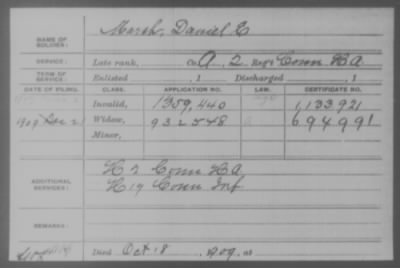 NAME OF SOLDIER: Marsh, Daniel E
SERVICE: Late rank, Co. A, 2 Reg't Conn H A
TERM OF SERVICE: Enlisted , 1 Discharged , 1
DATE OF FILING. CLASS. APPLICATION NO. LAW. CERTIFICATE NO.
Invalid, 1359,440 1,133,921
1909 Dec 21 Widow, 932548 694991
Minor,
ADDITIONAL SERVICES: H 2 Conn H A
H 19 Conn Inf
REMARKS:
Died Oct 18, 1909, at